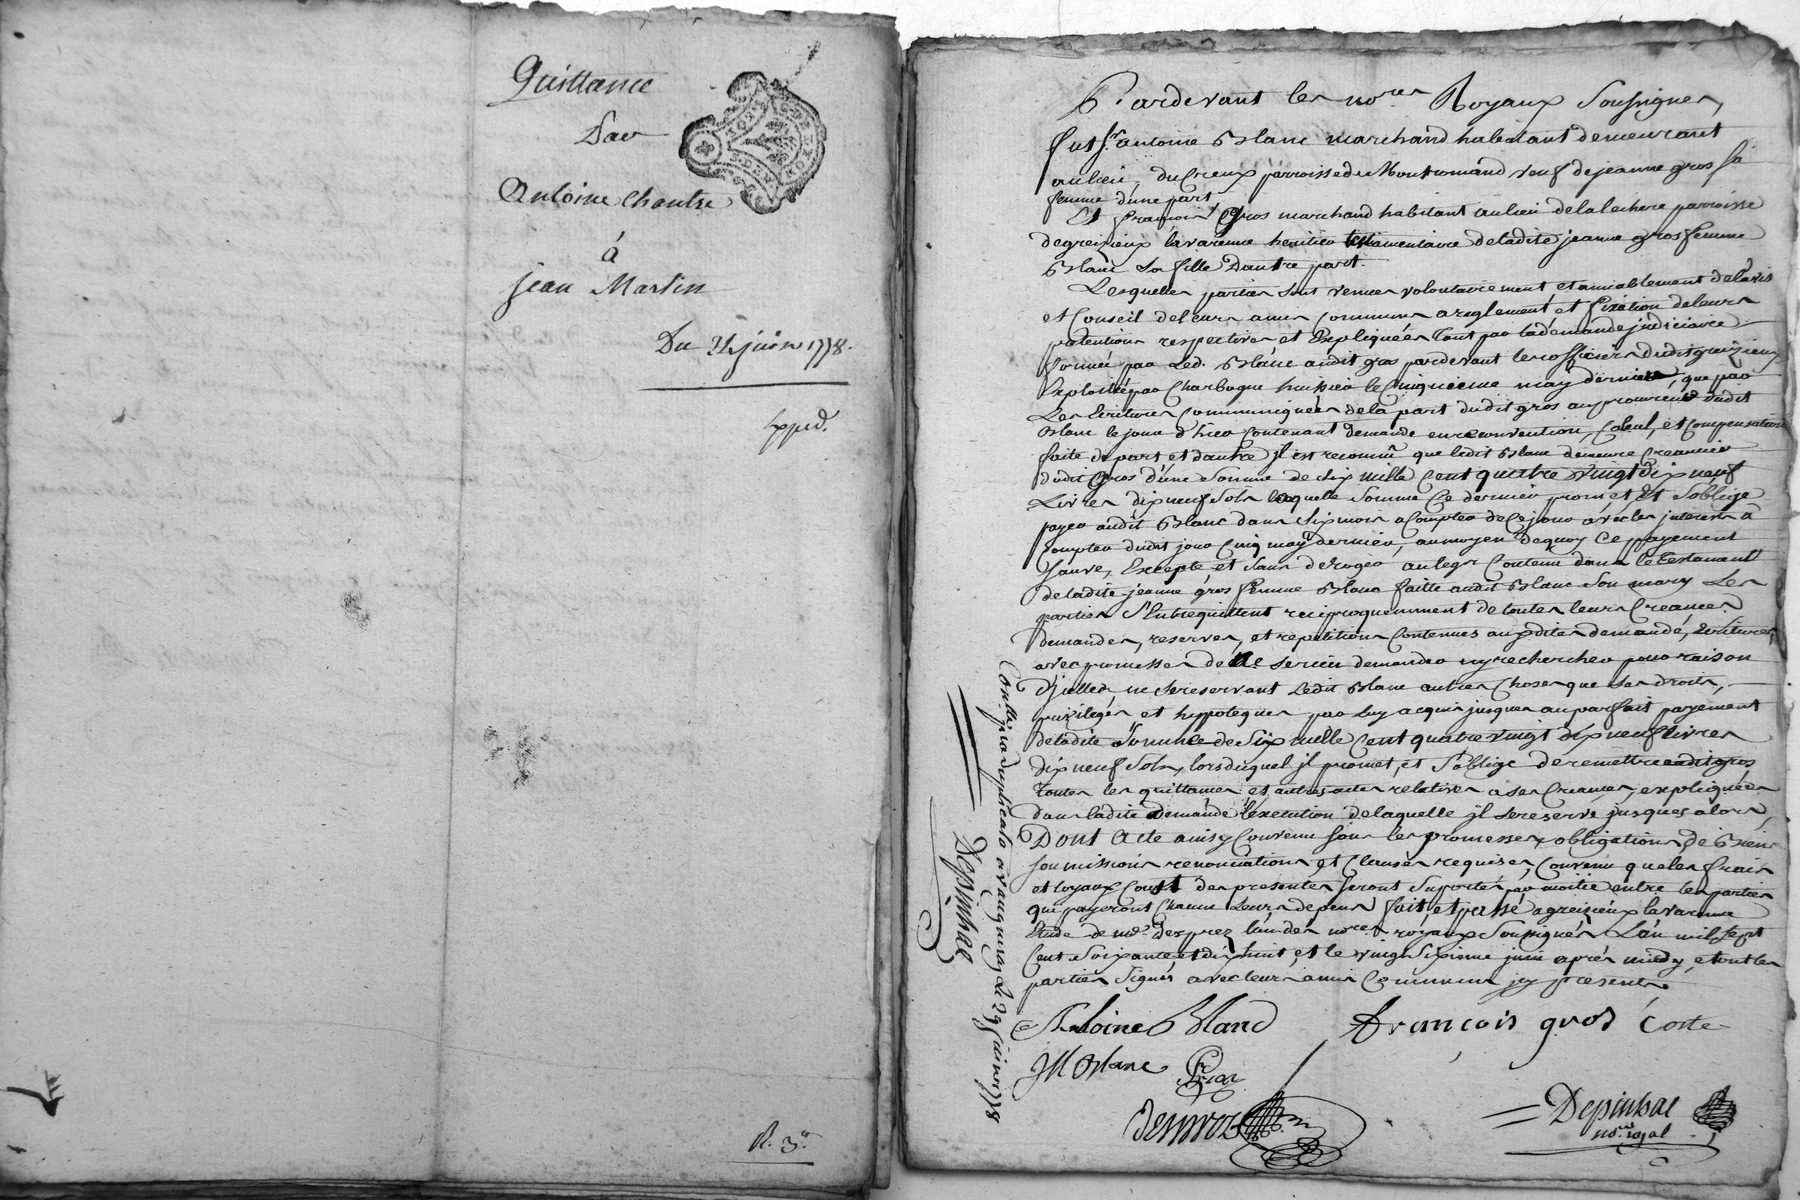 Quittance
Par
Antoine Chantre
à
jean Martin
Du juin 1778.
Expéd.
R. 3
Pardevant les no.res Royaux Soussignes,
fut Sr. antoine Blanc marchand habitant demeurant
au lieu, du Crieux parroisse de Montromand veuf de jeanne gros sa
femme d'une part
Et françois Gros marchand habitant au lieu de la lechere parroisse
de greizieux lavarenne heritier testamentaire de ladite jeanne gros femme
Blanc sa fille Dautre part.
Lesquelles parties sont venues volontairement et amiablement de lavis
et Conseil de leurs amis communs a reglement et fixation de leurs
pretentions respectives et Expliquées tant par la demande judiciaire
formée par led. Blanc audit gros pardevant les officiers dudit greizieux
Exploité par Charbogne huissier le Cinquieme may dernier, que par
Les Ecritures Communiquées de la part dudit gros au procureur dudit
Blanc le jour d'hier Contenant demande en reconvention, Calcul, et Compensation
faite de part et dautre jl est reconnu que ledit Blanc demeure Creancier
dudit Gros d'une Somme de Six mille Cent quatre vingt dix neuf
Livres dix neuf Sols laquelle Somme Ce dernier promet, Et S'oblige
payer audit Blanc dans Six mois a Compter de Ce jour avec les jnterets a
Compter dudit jour Cinq may dernier, au moyen de quoy Ce payement
Sauve, Excepté et Sans deroger au legs Contenu dans le testament
de ladite jeanne gros femme Blanc faitte audit Blanc Son mary Les
parties S'Entrequittent reciproquemment de toutes leurs Creances
demandes, reserves, et repetitions Contenues auxdites demande, Ecritures,
avec promesses de ne se rien demander ny rechercher pour raison
d'jcelles, ne se reservant Ledit Blanc autres Choses que Ses droits,
privileges et hippoteques par Luy acquis jusques au parfait payement
de ladite Somme de Six mille Cent quatre vingt dix neuf livres
dix neuf Sols, lors duquel jl promet, et S'oblige de remettre audit gros
toutes les quittances et autres actes relatives a Ses Creances, expliquées
dans ladite demande l'execution de laquelle jl se reserve jusques alors,
DONT Acte ainsy Convenu Sous les promesses obligations, de Biens
Soumissions renonciations, et Clauses requises, Convenu que les frais
et loyaux Coust des presentes Seront Suportés par moitié entre les parties
qui payeront Chacun Leurs depens fait et passé a greizieux lavarenne
Etude de me. desprez l'un des nores royaux Soussignés L'an mil Sept
Cent Soixante et dix huit, et le vingt Sixieme juin après midy, et ont les
parties Signés avec leurs amis Communs jcy presents
Antoine Blanc françois gros Coste
JM Blanc
Depinhac
no.re royal
Con.llé pr. duplicata a 29 juin 1778
Depinhac